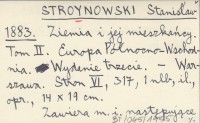 STROYNOWSKI Stanisław
1883. Ziemia i jej mieszkańcy.
Tom II. Europa Północno-Wschod-
nia. Wydanie trzecie. - War-
szawa. Stron VI, 317, 1 nlb, il.,
opr., 14 x 19 cm.
Zawiera m. i. następujące